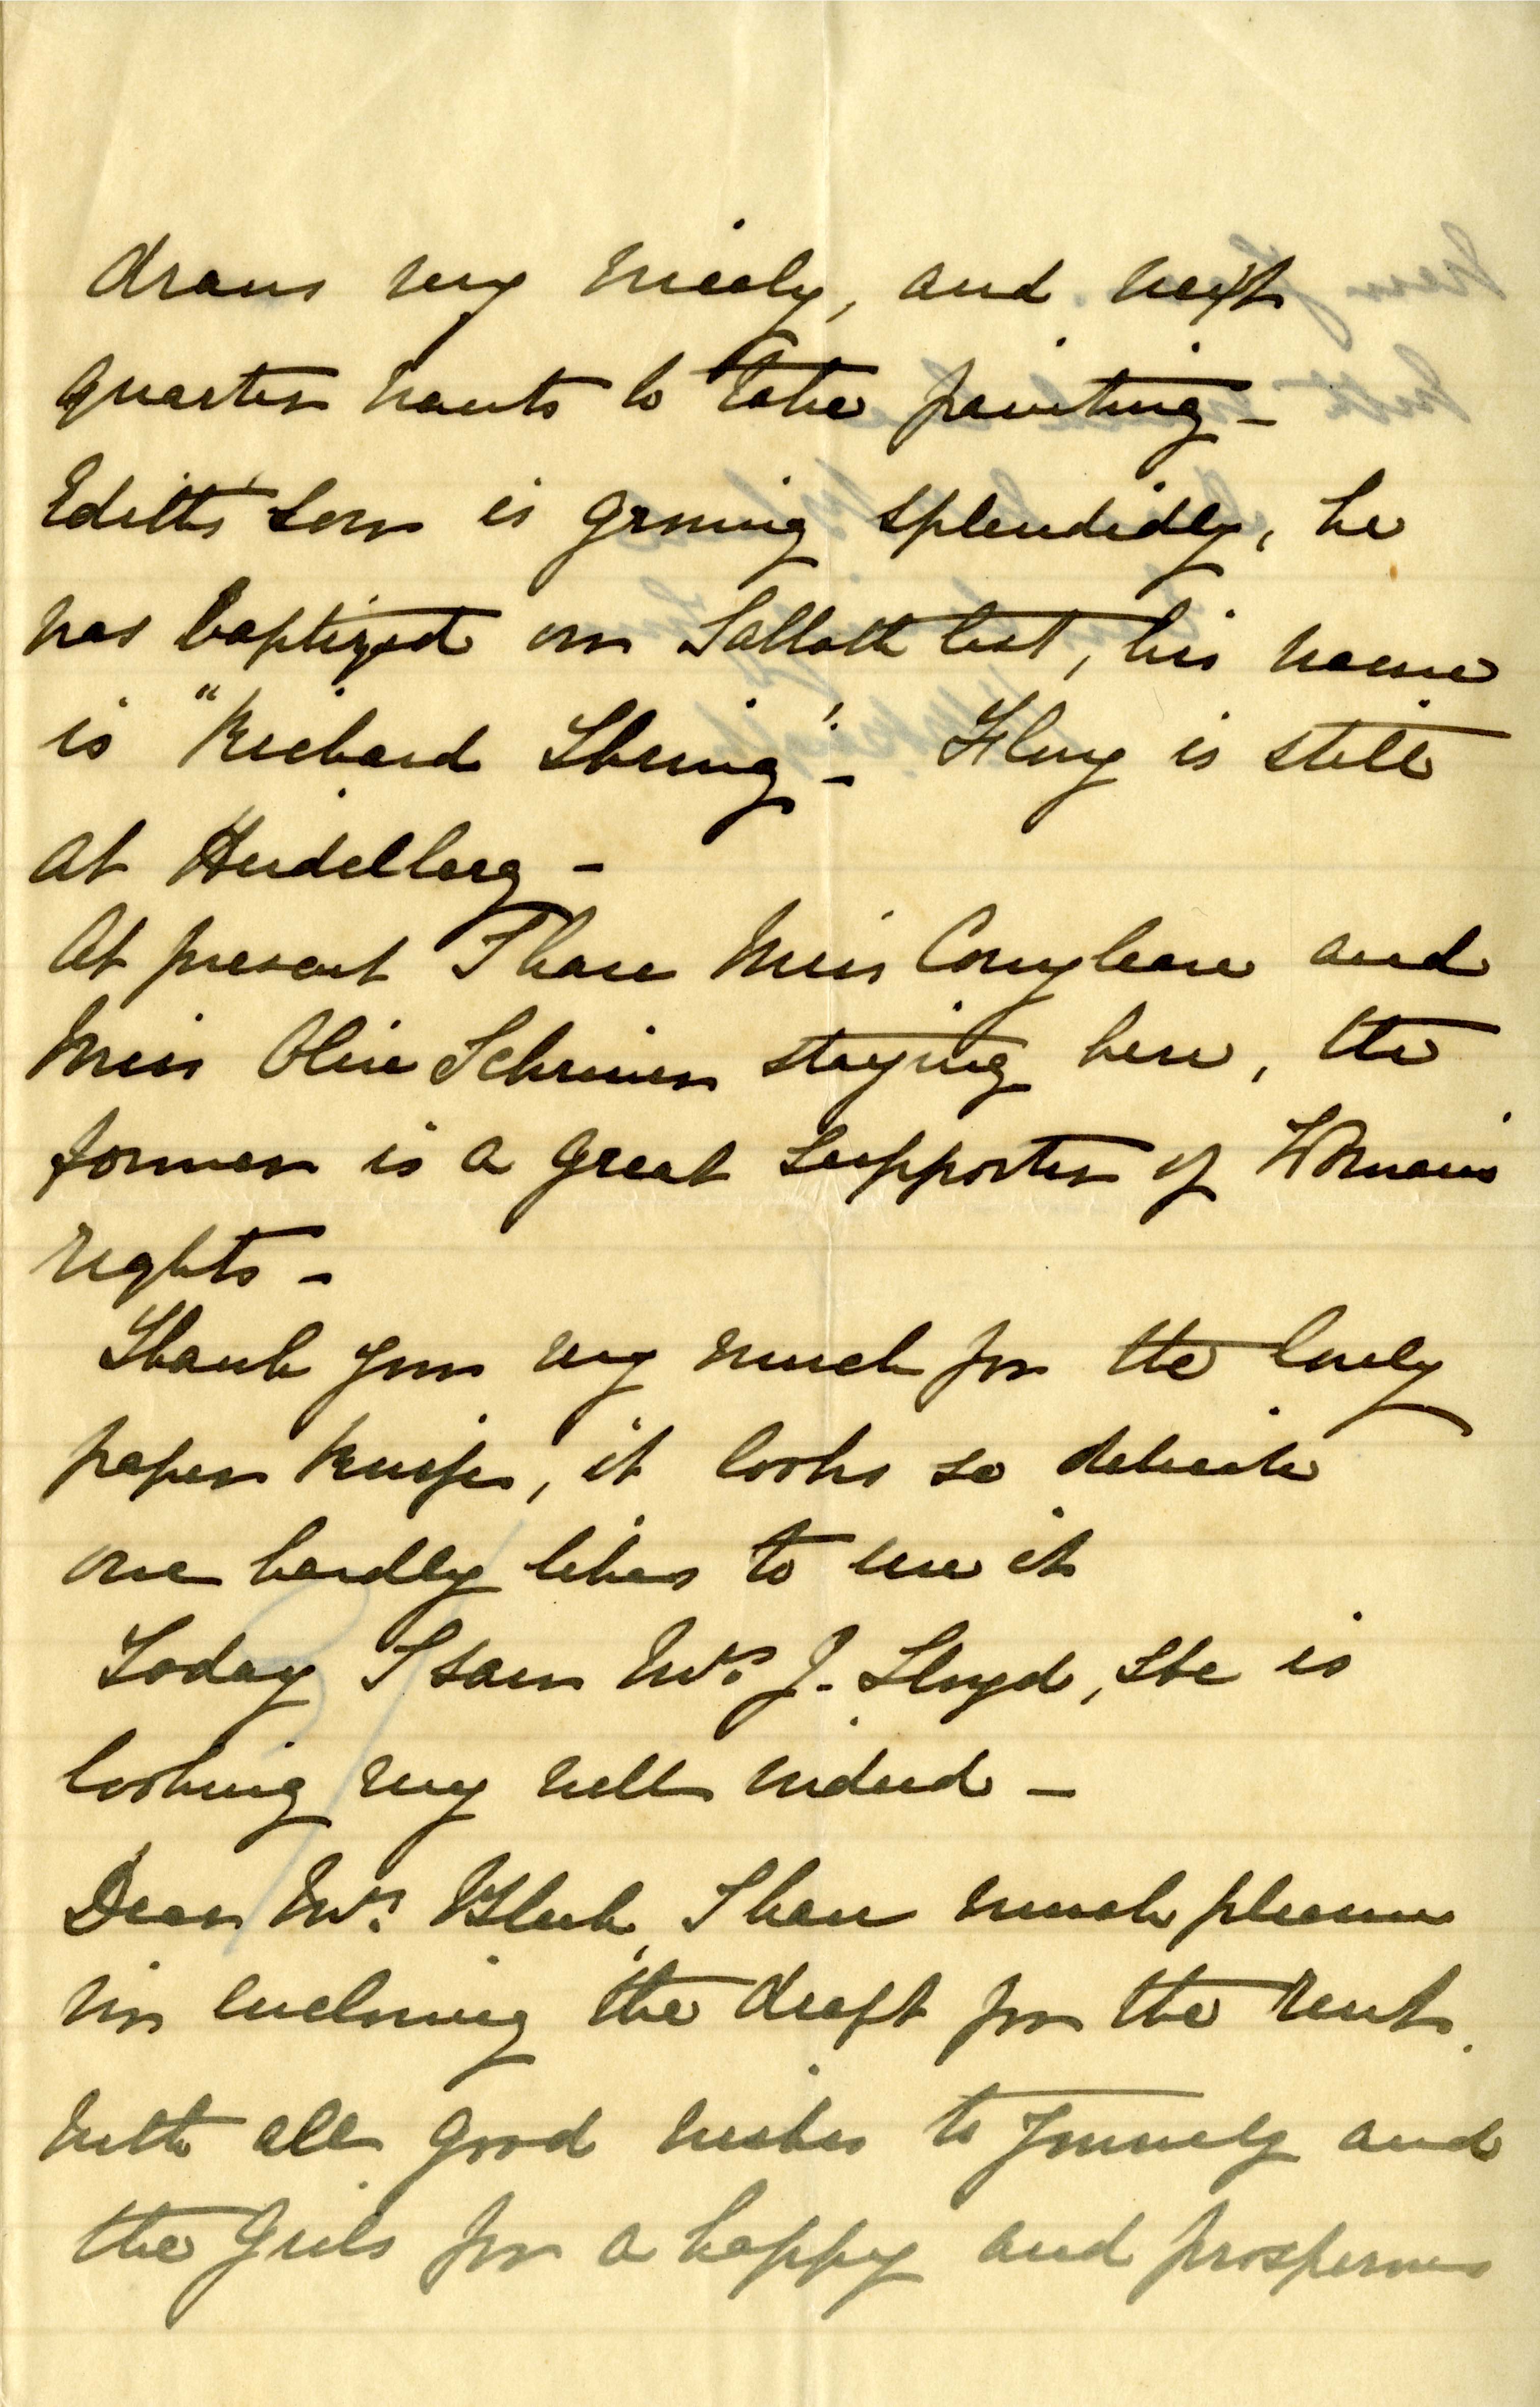 draws very nicely, and next
quarter wants to take painting –
Edith's son is growing splendidly, he
was baptized on Sabbath last, his name
is "Richard Ihring" – Flory is still
at Heidelberg –
At present I have Miss Conybeare and
Miss Olive Schreiner staying here, the
former is a great supporter of Woman's
rights –
Thank you very much for the lovely
paper knife, it looks so delicate
one hardly likes to use it
Today I saw Mrs. J. Lloyd, she is
looking very well indeed –
Dear Mrs. Bleek, I have much pleasure
in enclosing the draft for the rent.
With all good wishes to yourself and
the Girls for a happy and prosperous